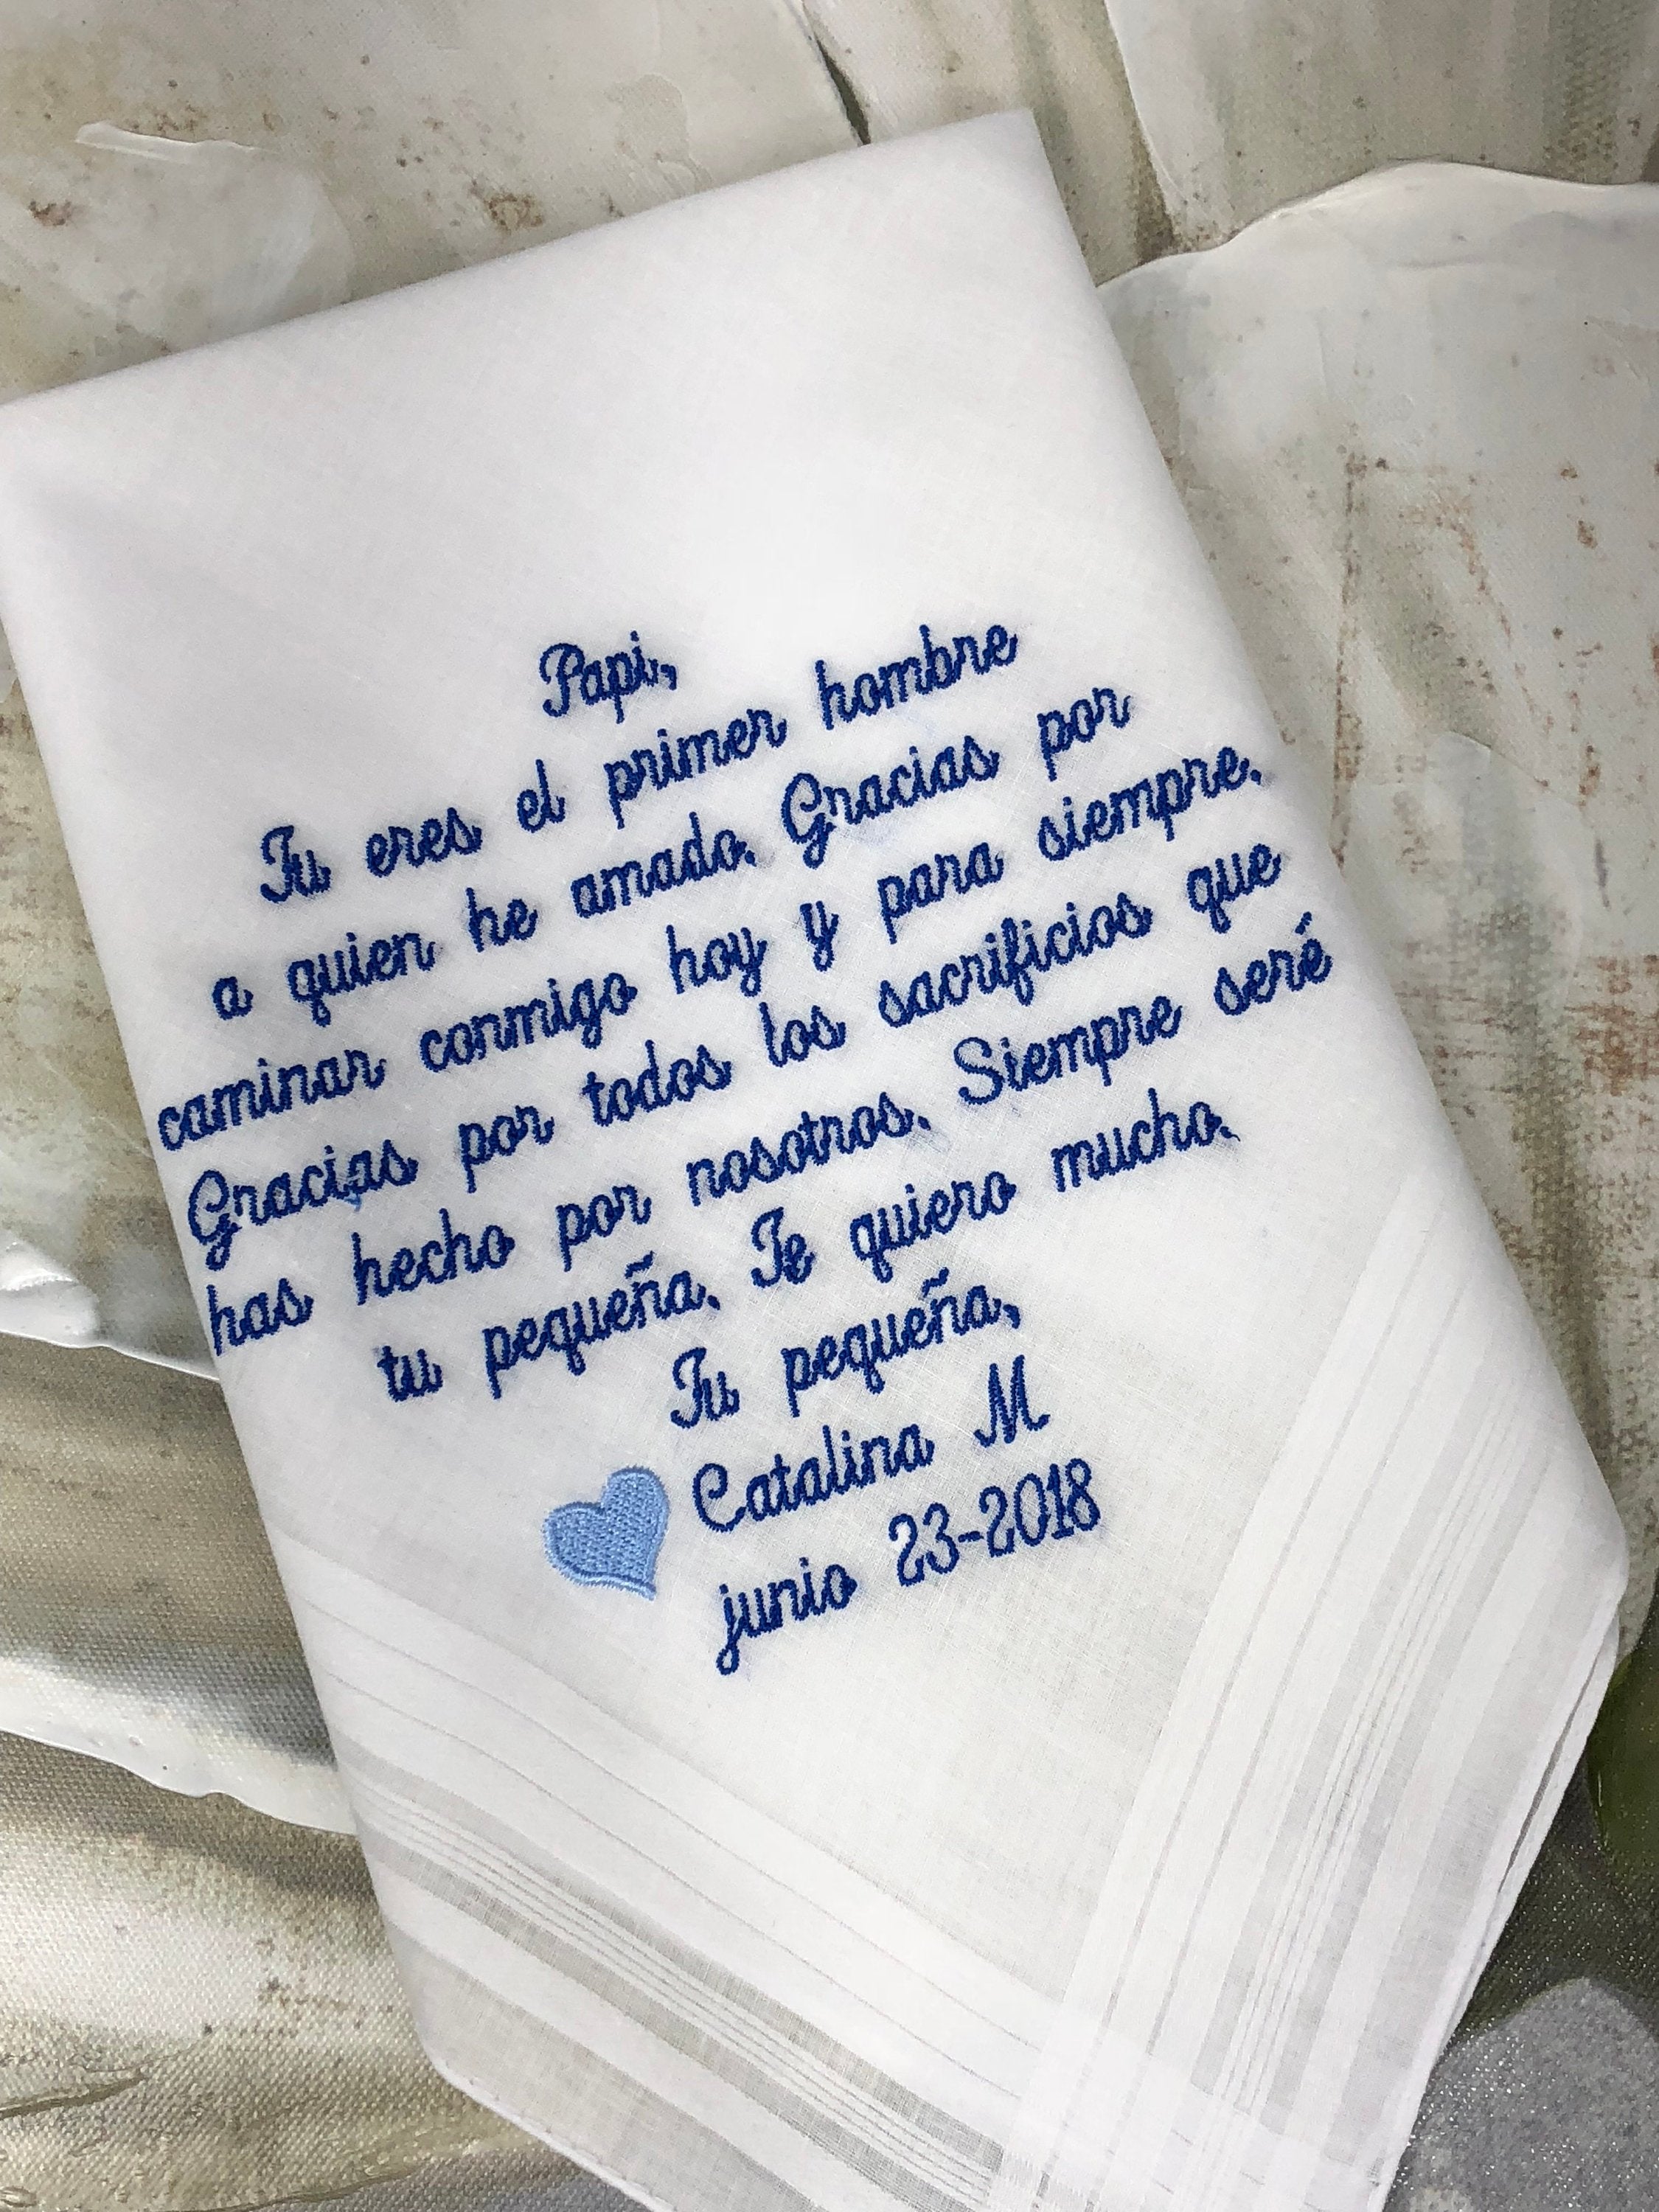 Papi,
Tu eres el primer hombre
a quien he amado. Gracias por
caminar conmigo hoy y para siempre.
Gracias por todos los sacrificios que
has hecho por nosotros. Siempre seré
tu pequeña. Te quiero mucho.
Tu pequeña,
Catalina M
junio 23-2018